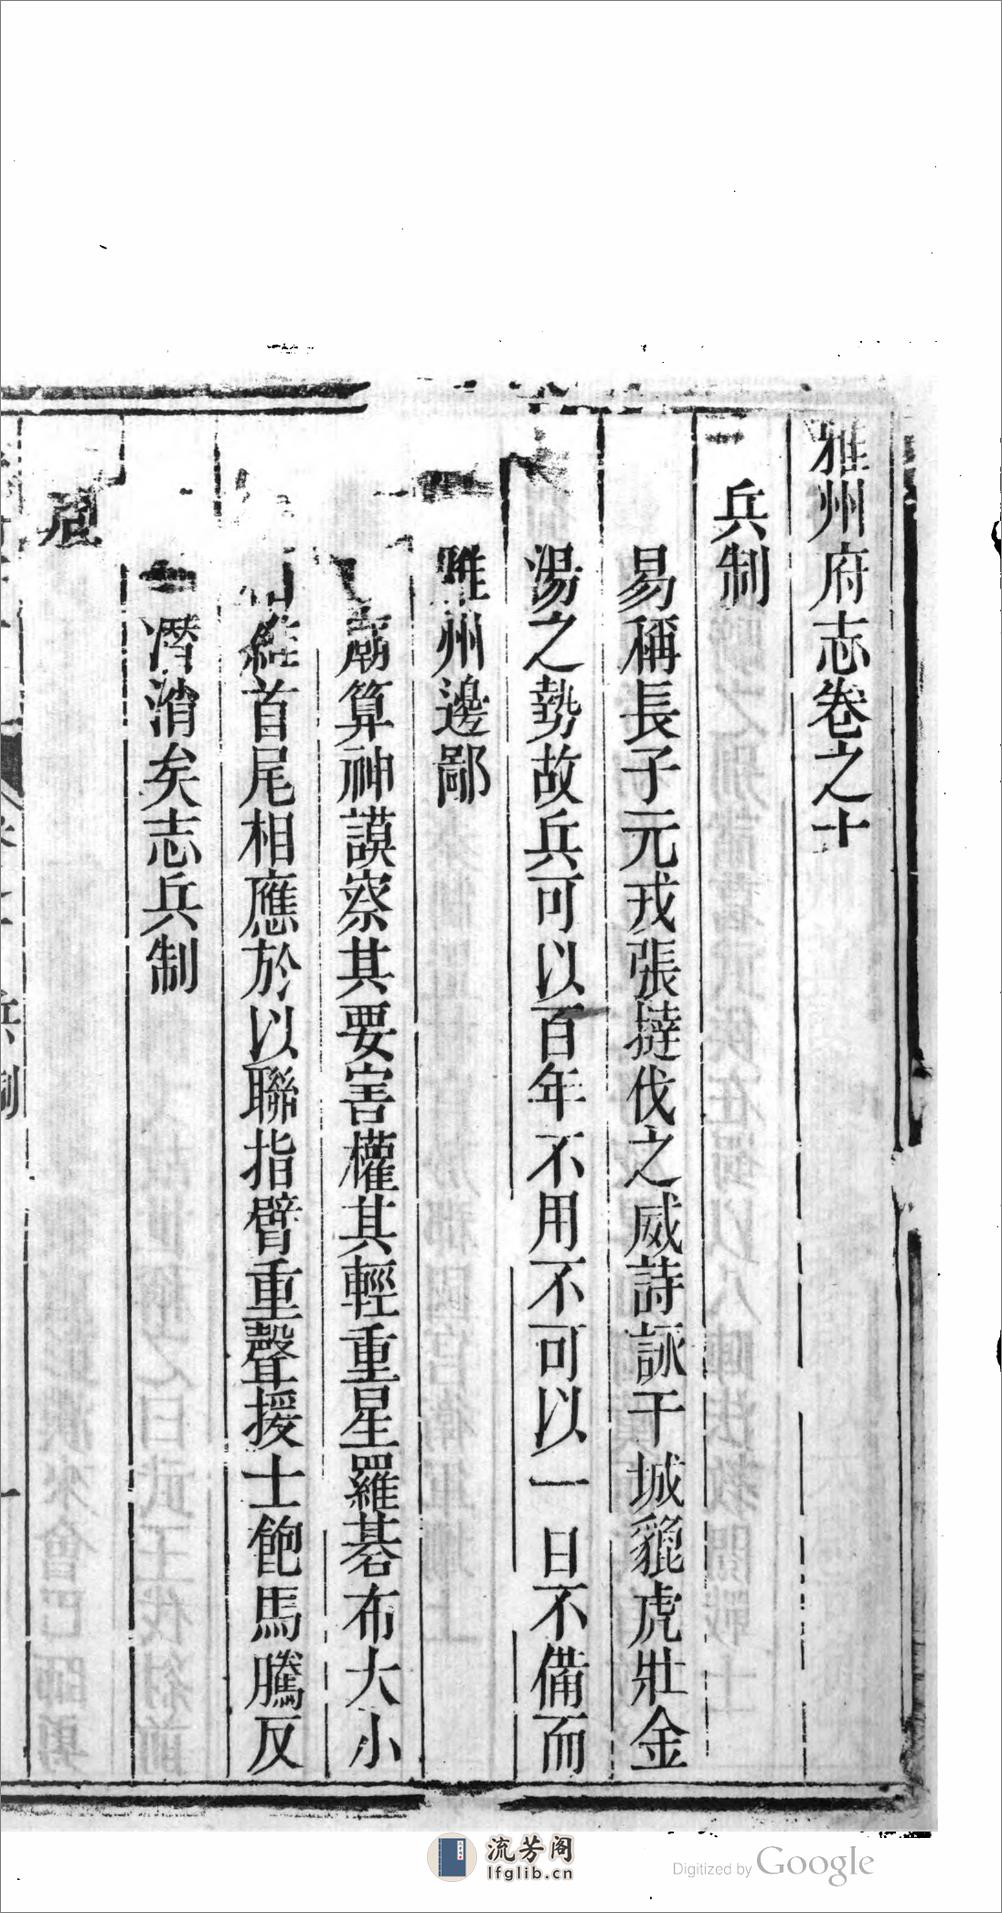 雅州府志卷之十
兵制
易稱長子元戎張撻伐之威詩詠干城貔虎壯金
湯之勢故兵可以百年不用不可以一日不備而
雅州邊鄙
廟算神謨察其要害權其輕重星羅碁布大小
維首尾相應於以聯指臂重聲援士飽馬騰反
潛消矣志兵制
兵制
流芳阁
lfglib.cn
Digitized by Google